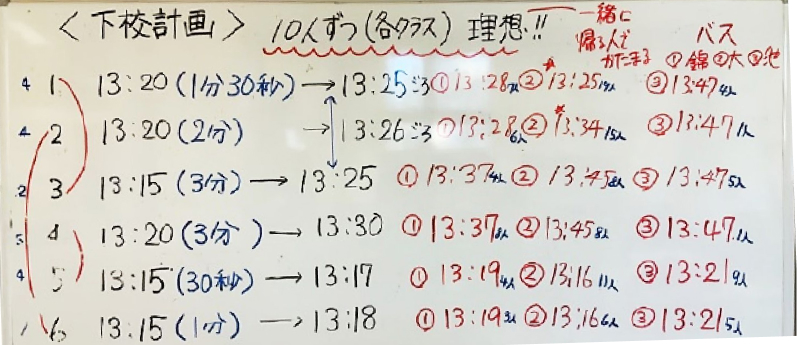 <下校計画> 10人ずつ(各クラス) 理想!!
一緒に帰る人でかたまる
バス
①錦②大③池
4 1 13:20(1分30秒)→13:25ごろ ①13:28 ②13:25 ③13:47 4人
4 2 13:20(2分)→13:26ごろ ①13:28 6人 ②13:34 15人 ③13:47 1人
2 3 13:15(3分)→13:25 ①13:37 4人 ②13:45 8人 ③13:47 5人
4 13:20(3分)→13:30 ①13:37 8人 ②13:45 8人 ③13:47 1人
4 5 13:15(30秒)→13:17 ①13:19 4人 ②13:16 11人 ③13:21 9人
1 6 13:15(1分)→13:18 ①13:19 9人 ②13:16 6人 ③13:21 5人